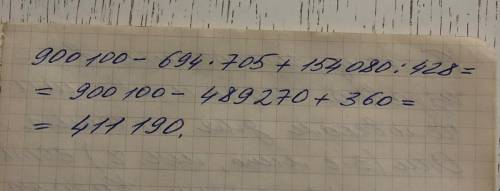 900100 - 694 · 705 + 154080 : 428 =
= 900100 - 489270 + 360 =
= 411190.